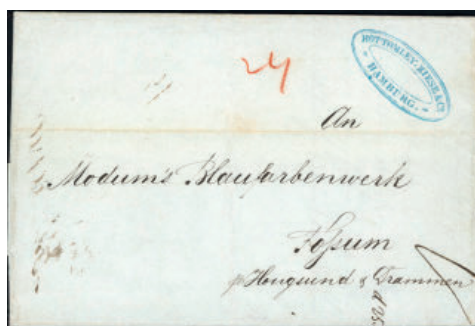 24
HOTTOMLEY, RIESE & Co
HAMBURG.
An
Modum's Blaufarbenwerk
Foſsum
p Hougsund & Drammen